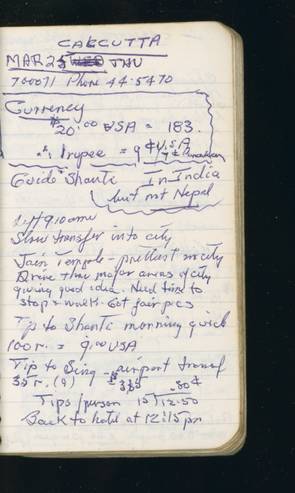 CALCUTTA
MAR 25 THU
700071 Phone 44-5470
Currency
$20.00 USA = 183.
∴ 1 rupee = 9¢ U.S.A
Guide Shante In India
but not Nepal
Lift 9:10 am
Slow transfer into city
Jain Temple - prettiest in city
Drive thru major areas of city
giving good idea. Need time to
stop & walk. Got fair pics
Tip to Shante morning guide
100 r. = 9.00 USA
Tip to Sing - airport transf
35 r. (9) .80¢
Tips/person 15)12.50
Back to hotel at 12:15 pm